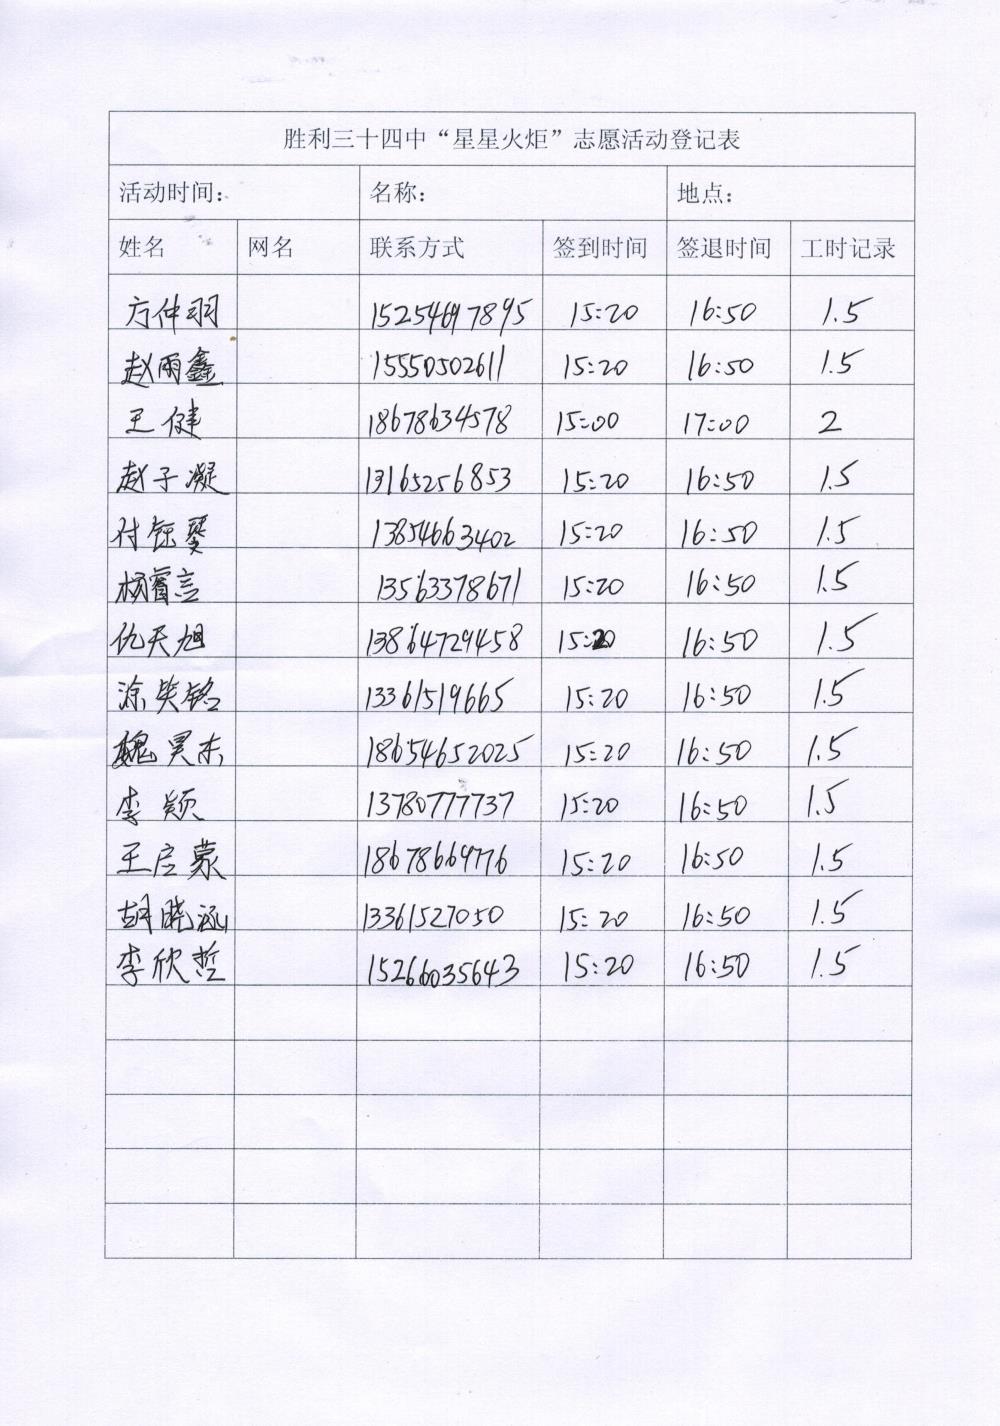 胜利三十四中“星星火炬”志愿活动登记表
活动时间: 名称: 地点:
姓名 网名 联系方式 签到时间 签退时间 工时记录
方仲羽 15254697895 15:20 16:50 1.5
赵雨鑫 15550502611 15:20 16:50 1.5
王健 18678634578 15:00 17:00 2
赵子凝 13165256853 15:20 16:50 1.5
付钰 13854663402 15:20 16:50 1.5
杨睿言 13563378671 15:20 16:50 1.5
仇天旭 13864729458 15:20 16:50 1.5
涂笑铭 13361519665 15:20 16:50 1.5
魏昊东 18654652025 15:20 16:50 1.5
李颖 13780777737 15:20 16:50 1.5
王启蒙 18678669776 15:20 16:50 1.5
胡晓涵 13361527050 15:20 16:50 1.5
李欣哲 15266035643 15:20 16:50 1.5